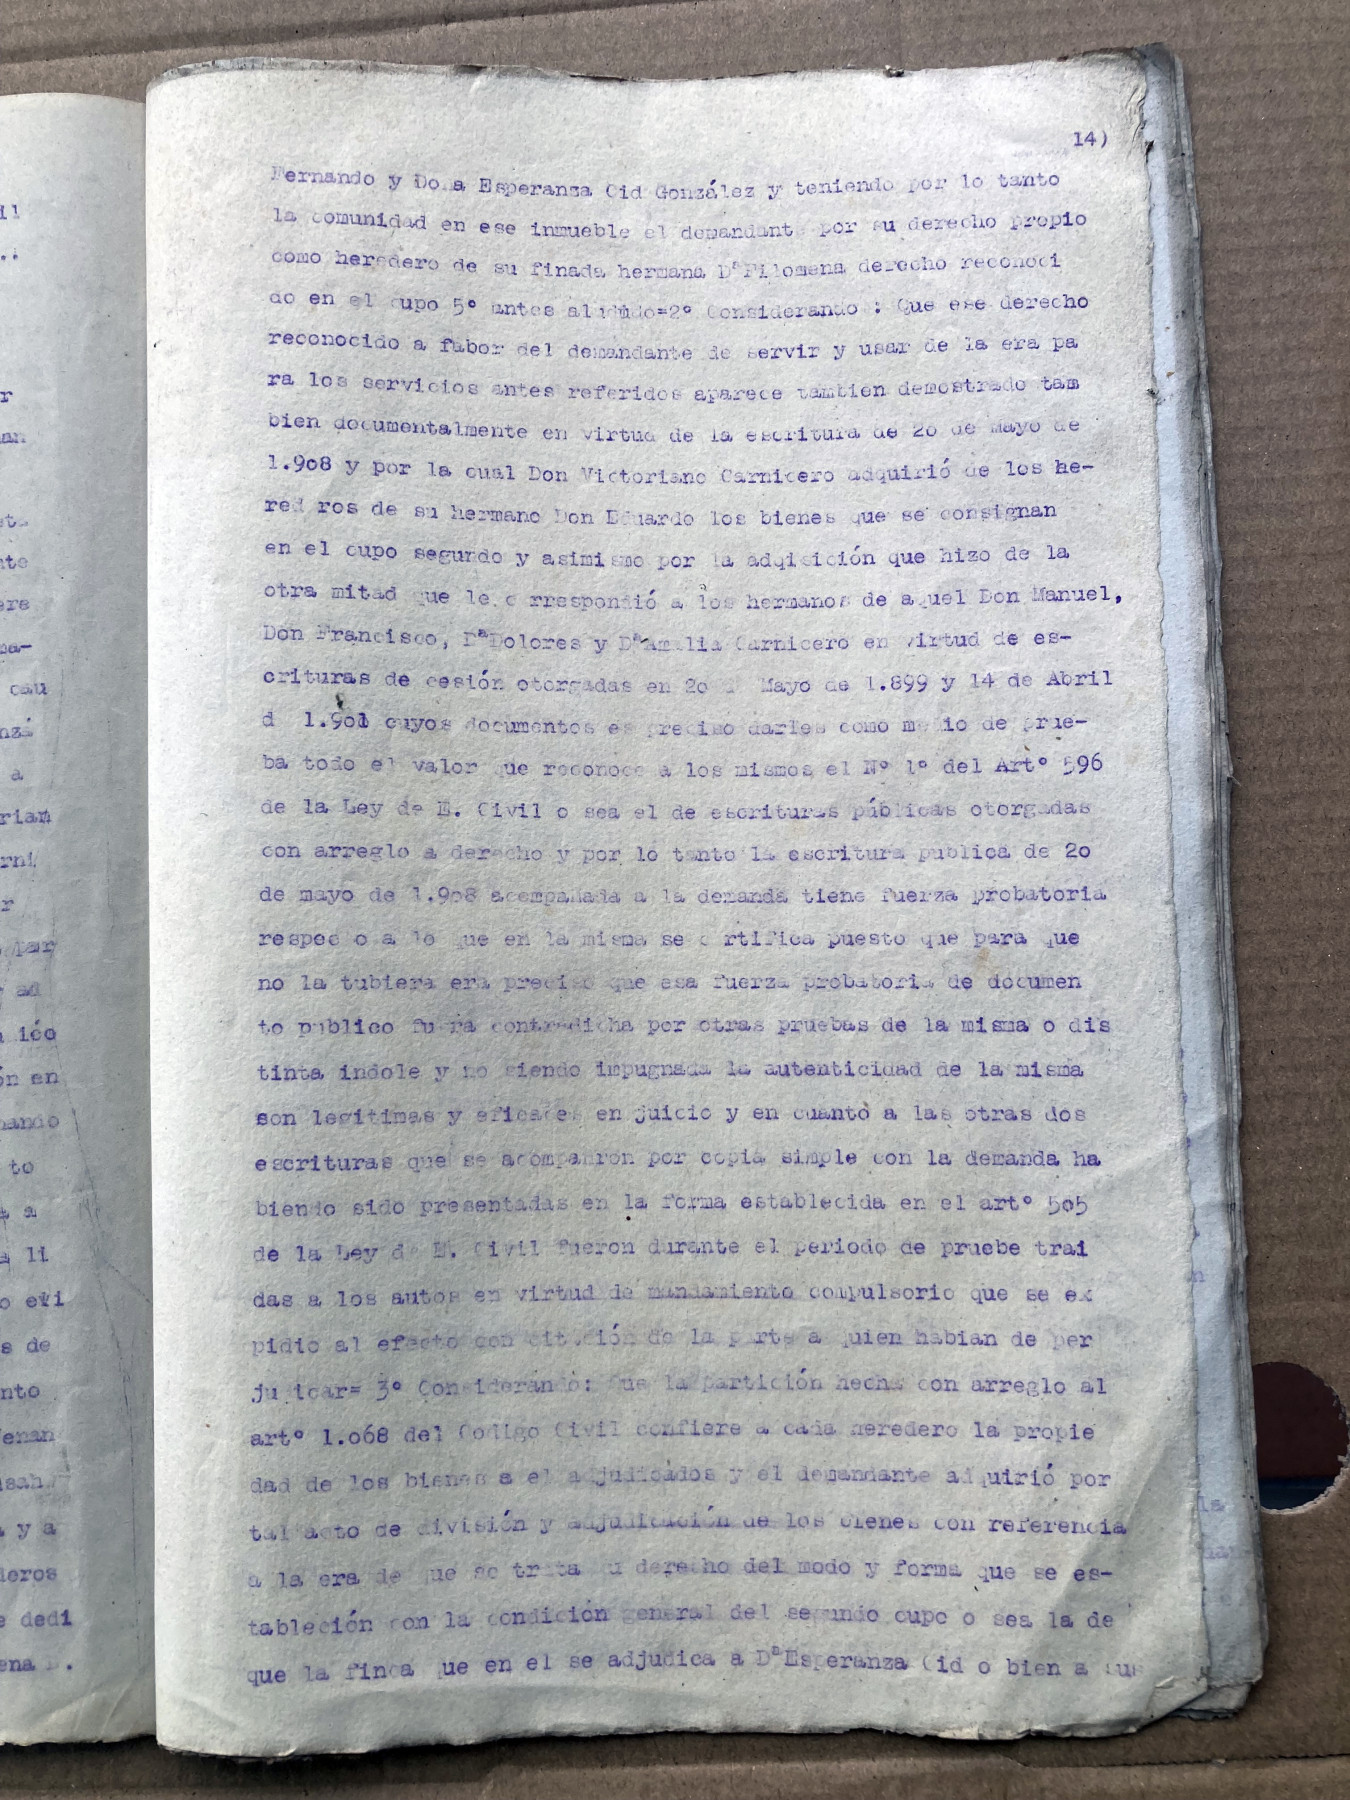 14)
Fernando y Doña Esperanza Cid González y teniendo por lo tanto
la comunidad en ese inmueble el demandante por su derecho propio
como heredero de su finada hermana Dª Filomena derecho reconoci
do en el cupo 5º antes aludido=2º Considerando : Que ese derecho
reconocido a fabor del demandante de servir y usar de la era pa
ra los servicios antes referidos aparece tambien demostrado tam
bien documentalmente en virtud de la escritura de 20 de Mayo de
1.908 y por la cual Don Victoriano Carnicero adquirió de los he-
red ros de su hermano Don Eduardo los bienes que se consignan
en el cupo segundo y asimismo por la adqisición que hizo de la
otra mitad que le c rrespondió a los hermanos de aquel Don Manuel,
Don Francisco, DªDolores y DªAmalia Carnicero en virtud de es-
crituras de cesión otorgadas en 20 Mayo de 1.899 y 14 de Abril
d 1.901 cuyos documentos es preciso darles como medio de prue-
ba todo el valor que reconoce a los mismos el Nº 1º del Artº 596
de la Ley de E. Civil o sea el de escrituras públicas otorgadas
con arreglo a derecho y por lo tanto la escritura publica de 20
de mayo de 1.908 acompañada a la demanda tiene fuerza probatoria
respec o a lo que en la misma se c rtifica puesto que para que
no la tubiera era preciso que esa fuerza probatoria de documen
to publico fuera contradicha por otras pruebas de la misma o dis
tinta indole y no siendo impugnada la autenticidad de la misma
son legitimas y eficaces en juicio y en cuanto a las otras dos
escrituras que se acompañron por copia simple con la demanda ha
biendo sido presentadas en la forma establecida en el artº 505
de la Ley de E. Civil fueron durante el periodo de pruebe trai
das a los autos en virtud de mandamiento compulsorio que se ex
pidio al efecto con citación de la parte a quien habian de per
judicar= 3º Considerando: Que la partición hecha con arreglo al
artº 1.068 del Codigo Civil confiere a cada heredero la propie
dad de los bienes a el adjudicados y el demandante adquirió por
tal acto de división y adjudicación de los bienes con referencia
a la era de que se trata su derecho del modo y forma que se es-
tableción con la condición general del segundo cupo o sea la de
que la finca que en el se adjudica a DªEsperanza Cid o bien a sus